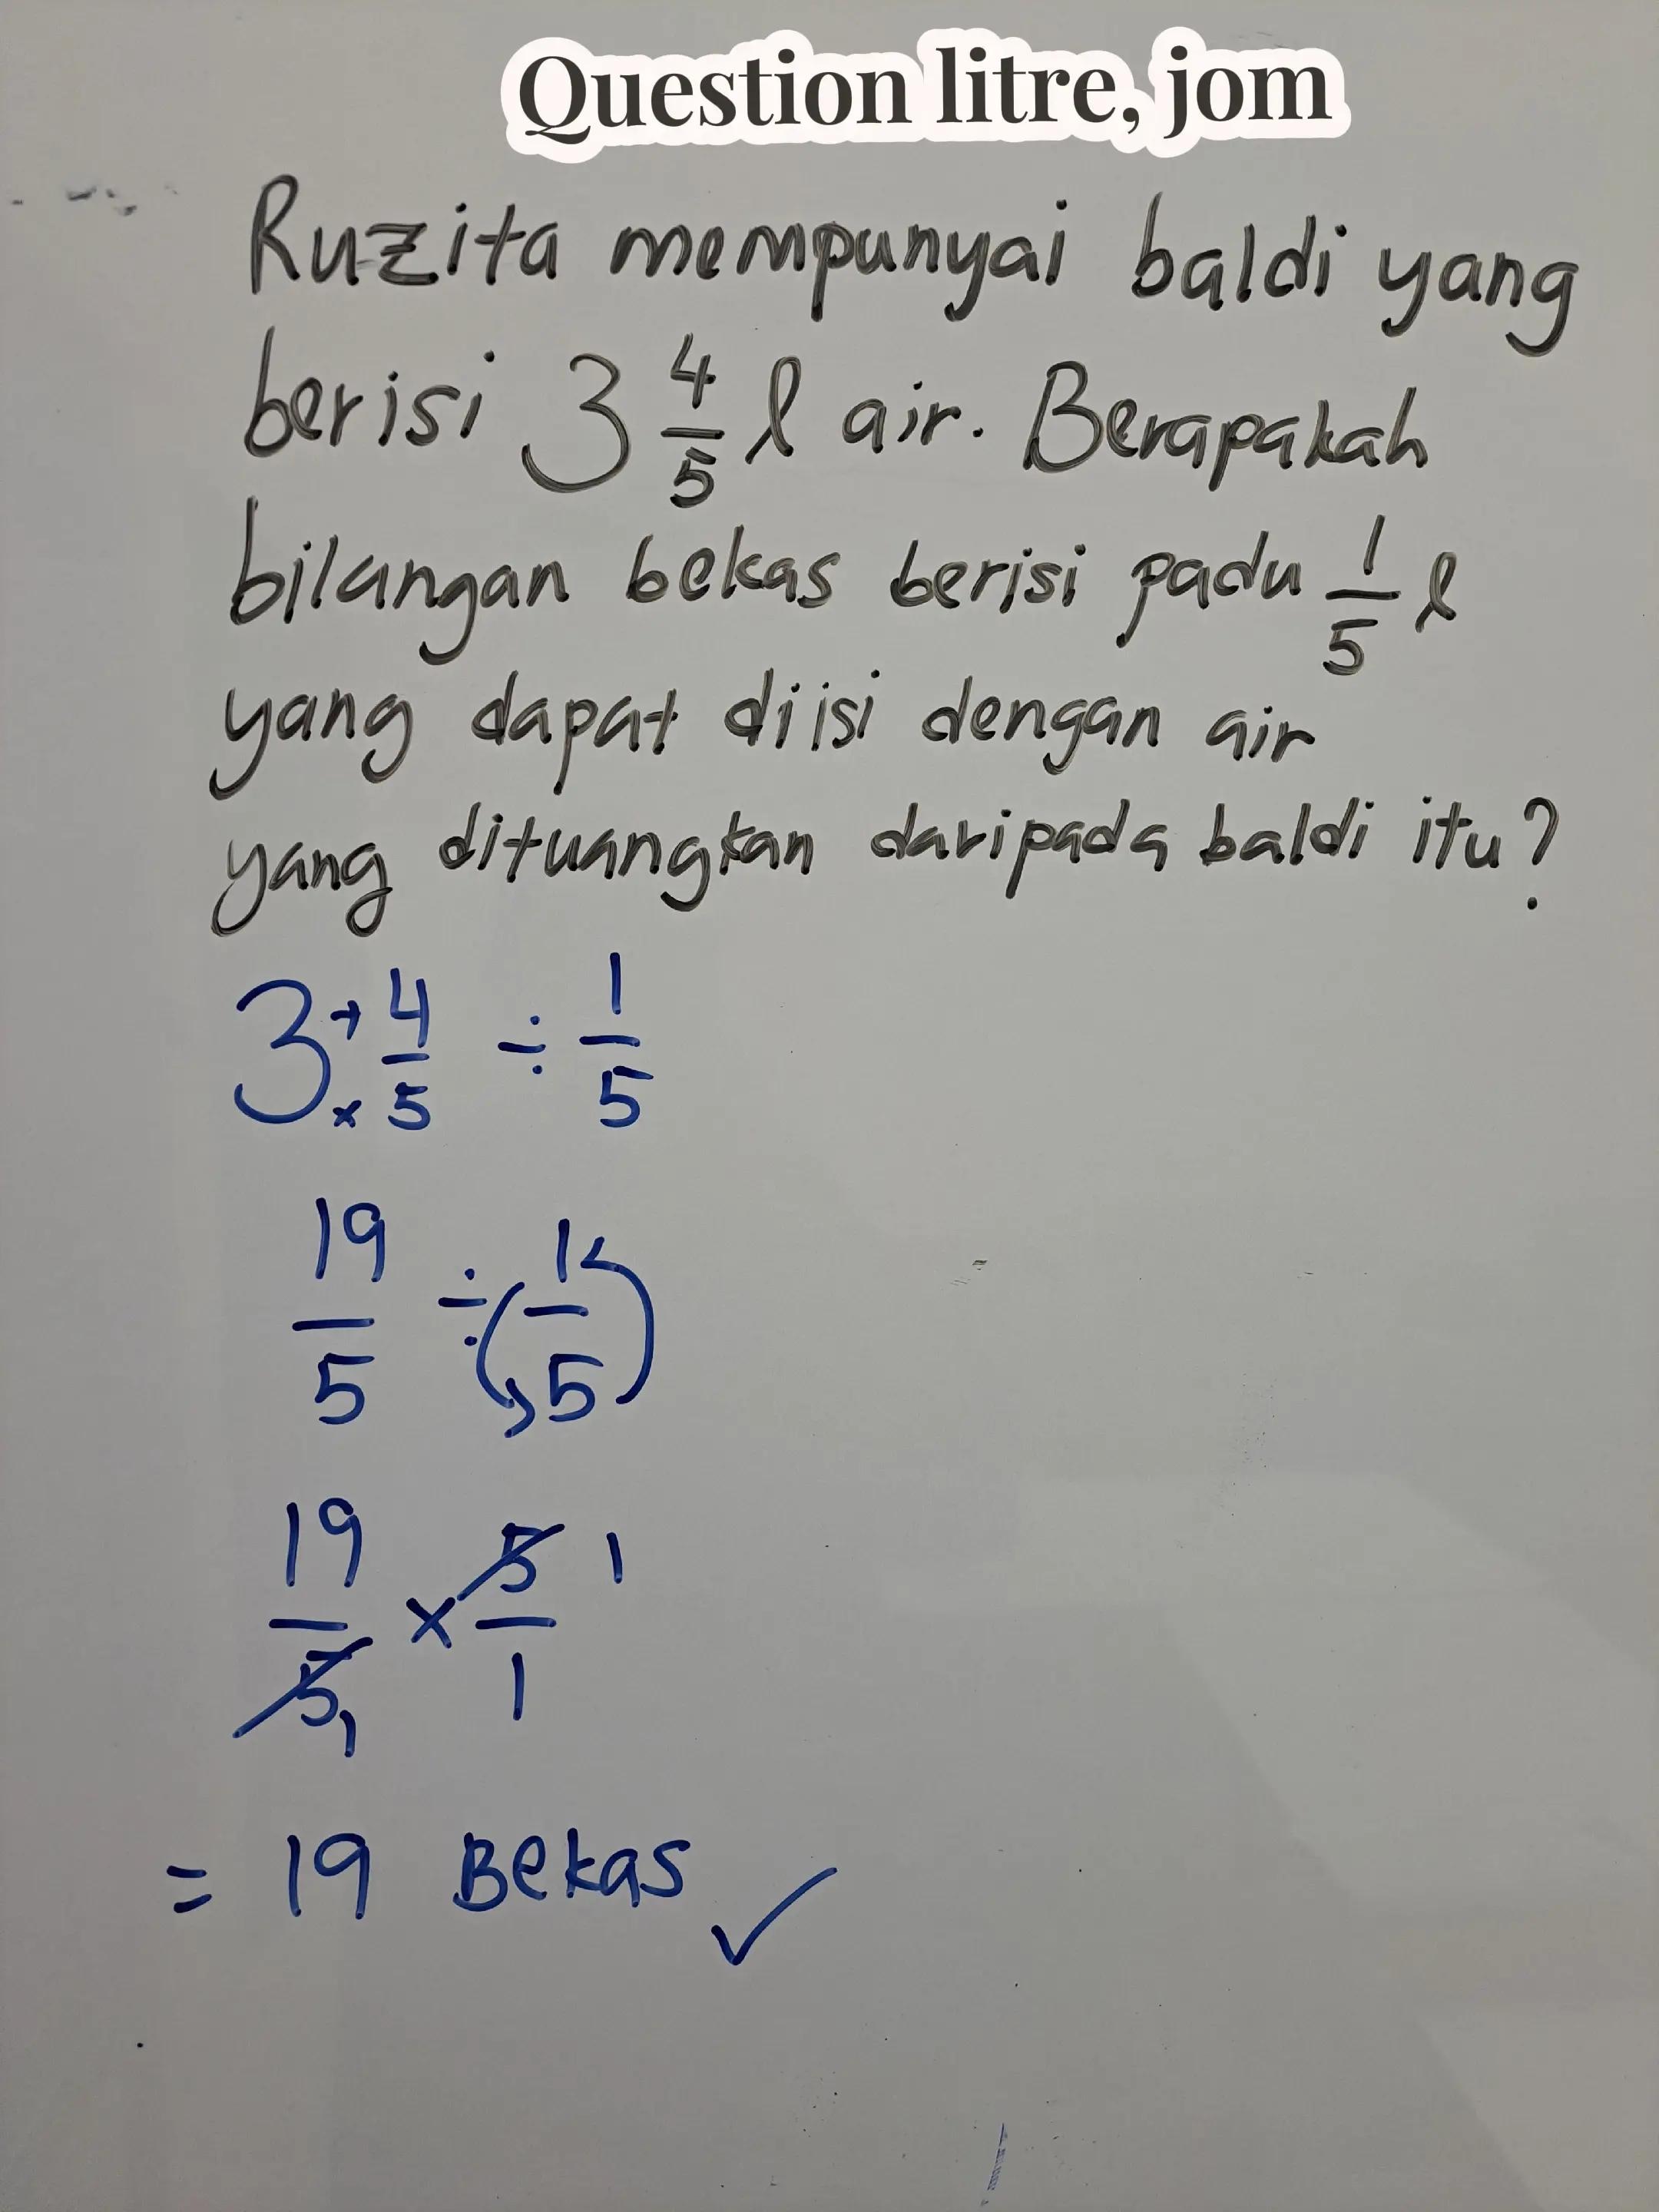 Question litre, jom
Ruzita mempunyai baldi yang
berisi 3 4/5 l air. Berapakah
bilangan bekas berisi padu 1/5 l
yang dapat diisi dengan air
yang dituangkan daripada baldi itu?
3 + 4/5 ÷ 1/5
×
19/5 ÷ (1/5)
19/5 × 5/1 1
1
= 19 Bekas ✓